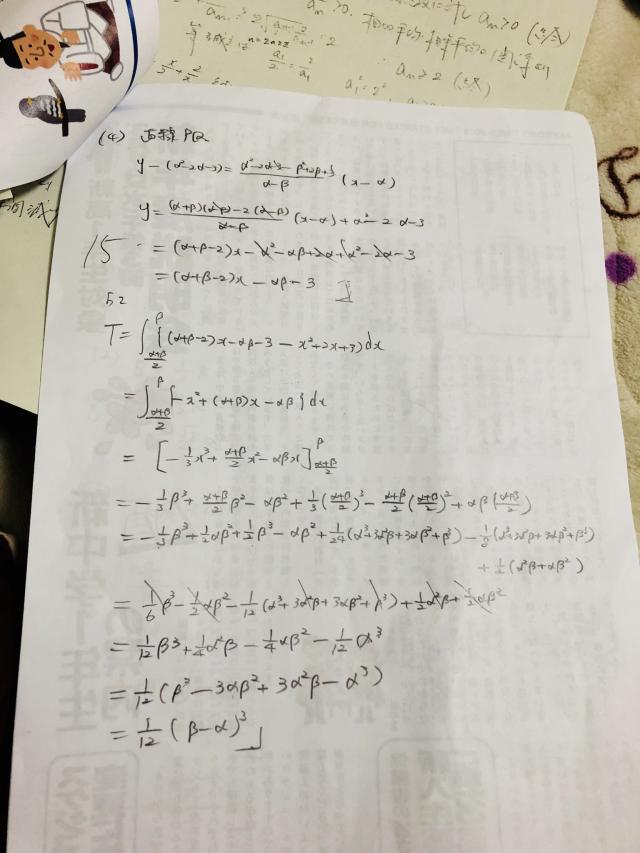 aₙ ≥ 2 (答)
(4) 直線PQ
y-(α²-2α-3)= \frac{α²-2α-3-β²+2β+3}{α-β} (x-α)
y= \frac{(α+β)(α-β)-2(α-β)}{α-β} (x-α)+α²-2α-3
15 = (α+β-2)x-α²-αβ+2α+α²-2α-3
= (α+β-2)x-αβ-3 」
52
T= ∫_{\frac{α+β}{2}}^{β} {(α+β-2)x-αβ-3-x²+2x+3}dx
= ∫_{\frac{α+β}{2}}^{β} {-x²+(α+β)x-αβ}dx
= [-\frac{1}{3}x³+\frac{α+β}{2}x²-αβx]_{\frac{α+β}{2}}^{β}
= -\frac{1}{3}β³+\frac{α+β}{2}β²-αβ²+\frac{1}{3}(\frac{α+β}{2})³-\frac{α+β}{2}(\frac{α+β}{2})²+αβ(\frac{α+β}{2})
= -\frac{1}{3}β³+\frac{1}{2}αβ²+\frac{1}{2}β³-αβ²+\frac{1}{24}(α³+3α²β+3αβ²+β³)-\frac{1}{8}(α³+3α²β+3αβ²+β³)
+\frac{1}{2}(α²β+αβ²)
= \frac{1}{6}β³-\frac{1}{2}αβ²-\frac{1}{12}(α³+3α²β+3αβ²+β³)+\frac{1}{2}α²β+\frac{1}{2}αβ²
= \frac{1}{12}β³+\frac{1}{4}α²β-\frac{1}{4}αβ²-\frac{1}{12}α³
= \frac{1}{12}(β³-3αβ²+3α²β-α³)
= \frac{1}{12}(β-α)³ 」